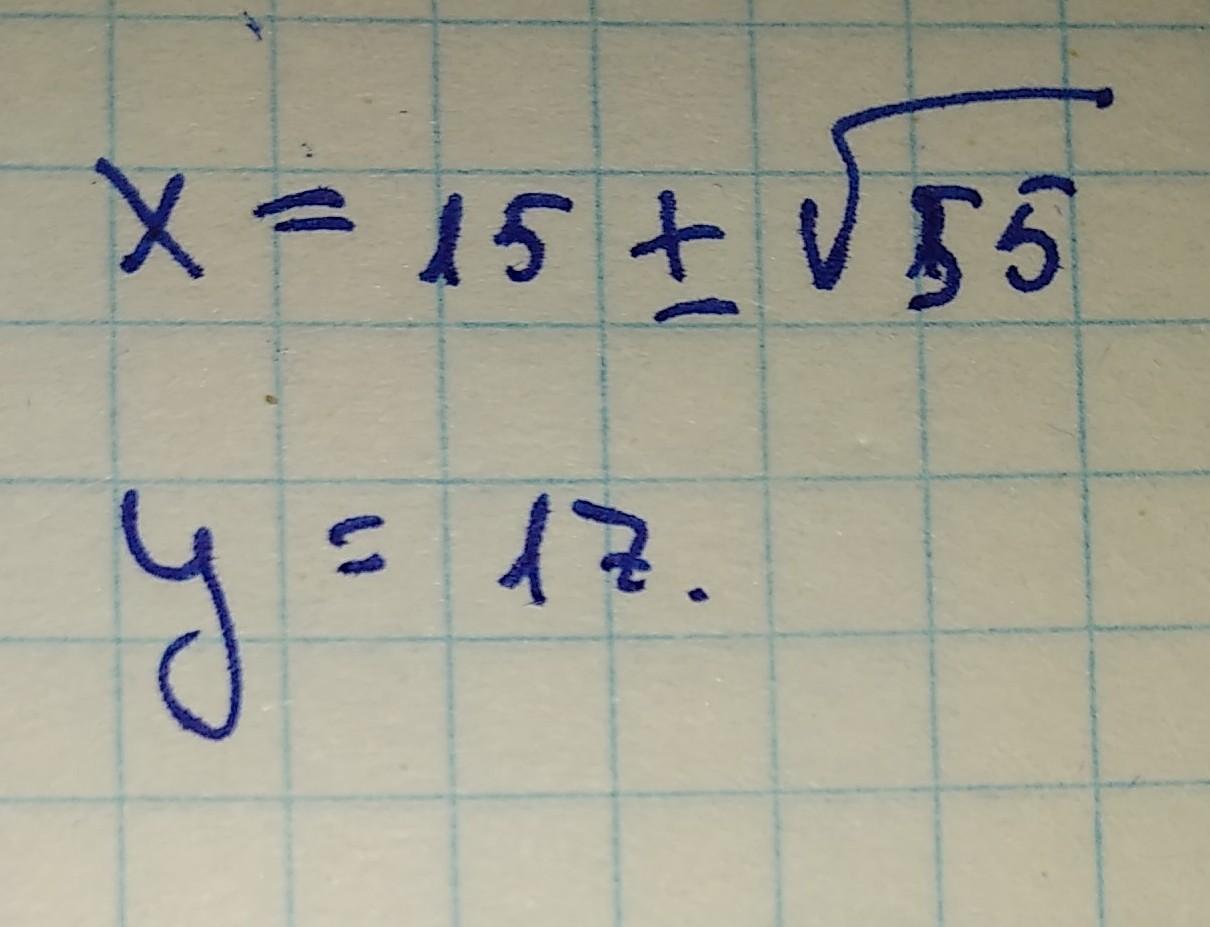 x = 15 ± √55
y = 17.